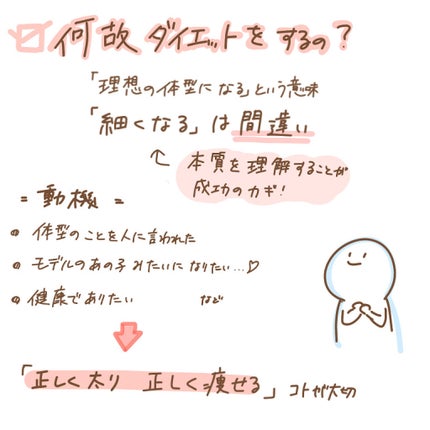 何故ダイエットをするの？
「理想の体型になる」という意味
「細くなる」は間違い
本質を理解することが
成功のカギ！
= 動機 =
体型のことを人に言われた
モデルのあの子みたいになりたい…♡
健康でありたい など
「正しく太り 正しく痩せる」コトが大切